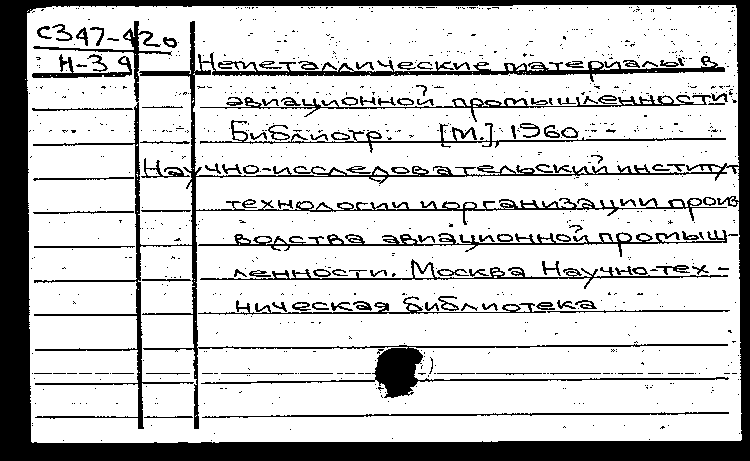 С347-420
Н-39 Неметаллические материалы в
авиационной промышленности.
Библиогр. [М.], 1960.
Научно-исследовательский институт
технологии иорганизации произ
водства авиационной промыш-
ленности. Москва Научно-тех-
ническая библиотека